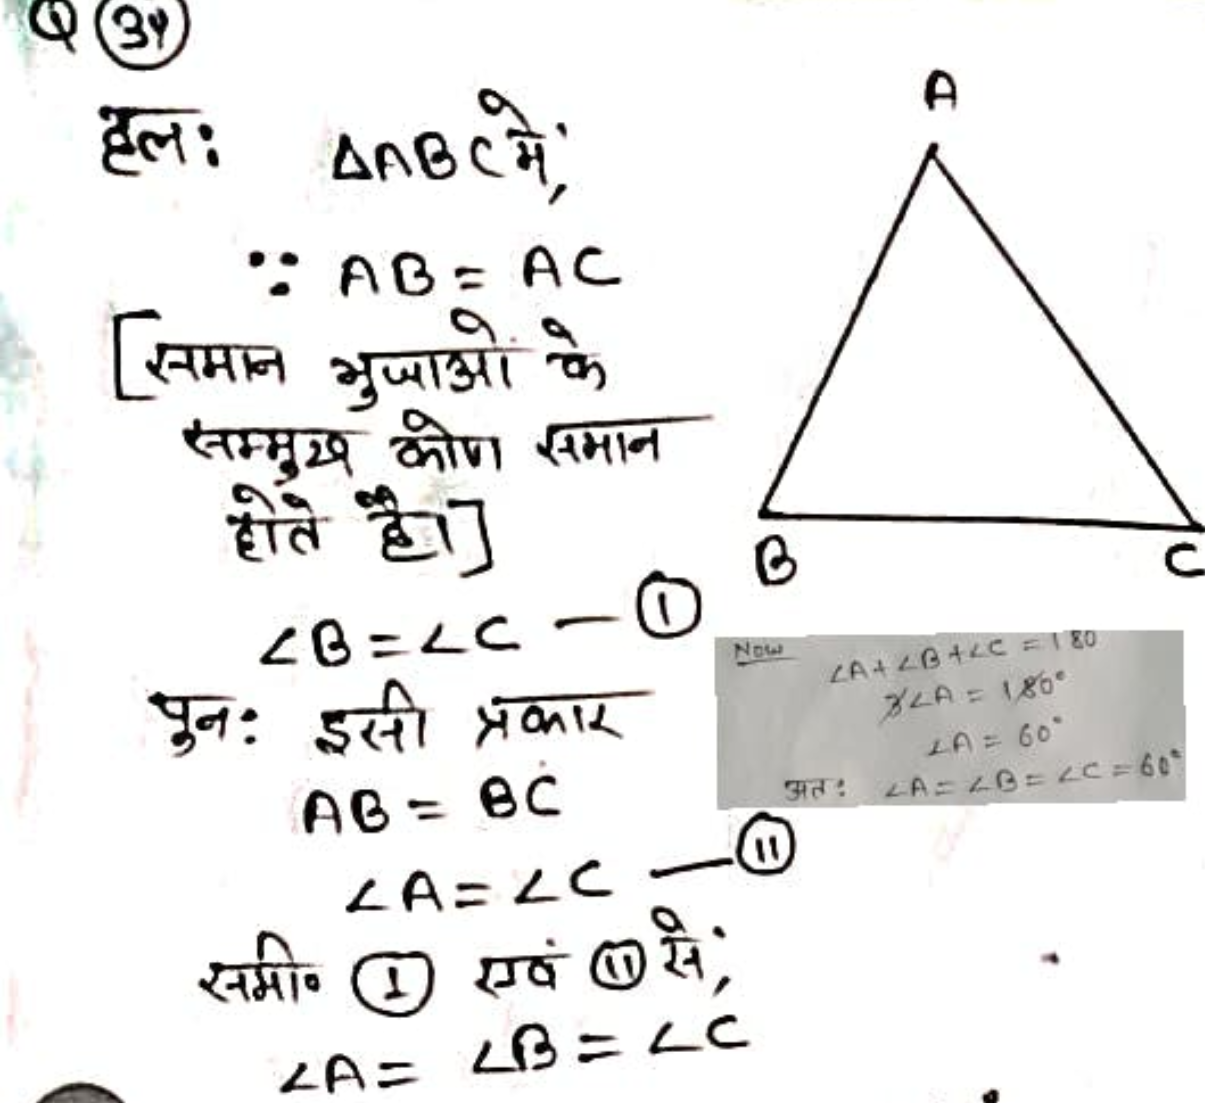 Q 34
हल: ΔABC में,
∵ AB = AC
[समान भुजाओं के
सम्मुख कोण समान
होते है।]
∠B = ∠C — I
पुन: इसी प्रकार
AB = BC
∠A = ∠C — II
समी॰ I एवं II से,
∠A = ∠B = ∠C
A
B
C
Now
∠A + ∠B + ∠C = 180
3∠A = 180°
∠A = 60°
अत: ∠A = ∠B = ∠C = 60°